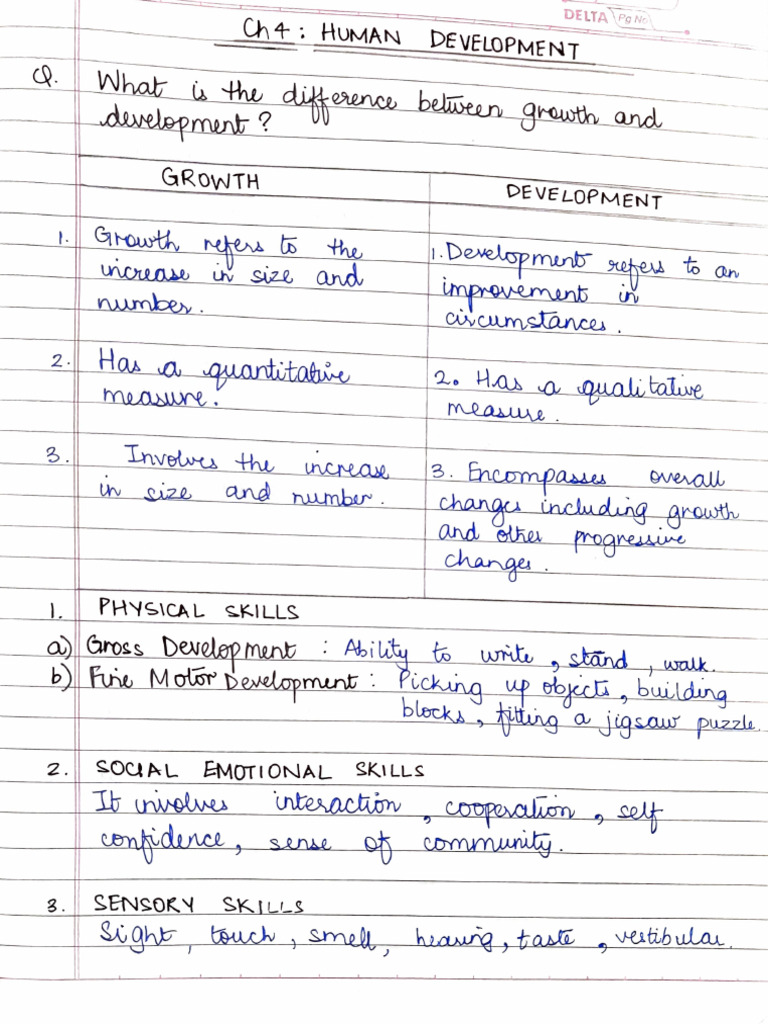 DELTA Pg No.
Ch 4 : HUMAN DEVELOPMENT
Q. What is the difference between growth and
development?
GROWTH
DEVELOPMENT
1. Growth refers to the
increase in size and
number.
1. Development refers to an
improvement in
circumstances.
2. Has a quantitative
measure.
2. Has a qualitative
measure.
3. Involves the increase
in size and number.
3. Encompasses overall
changes including growth
and other progressive
changes.
1. PHYSICAL SKILLS
a) Gross Development : Ability to write, stand, walk.
b) Fine Motor Development : Picking up objects, building
blocks, fitting a jigsaw puzzle.
2. SOCIAL EMOTIONAL SKILLS
It involves interaction, cooperation, self
confidence, sense of community.
3. SENSORY SKILLS
Sight, touch, smell, hearing, taste, vestibular.